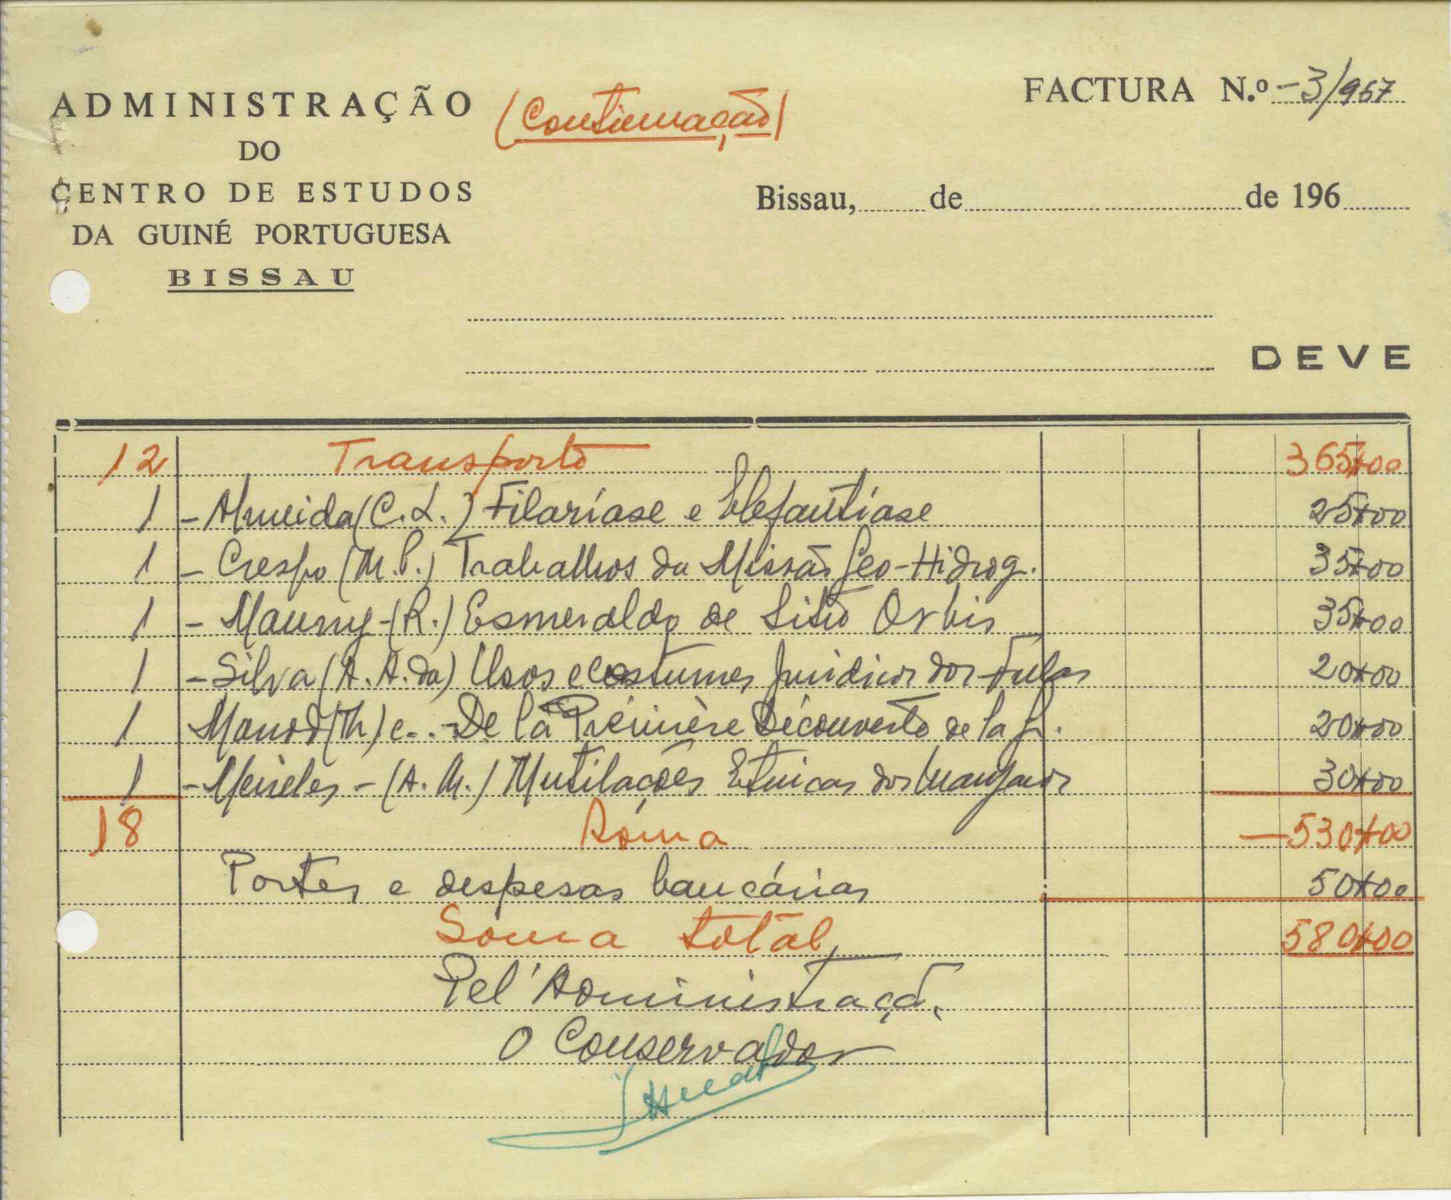 ADMINISTRAÇÃO
DO
CENTRO DE ESTUDOS
DA GUINÉ PORTUGUESA
BISSAU
(Continuação)
FACTURA N.º -3/967
Bissau, de de 196
DEVE
12 Transporto 365$00
1 - Almeida (C. L.) Filaríase e Elefantíase 25$00
1 - Crespo (M. P.) Trabalhos da Missão Geo-Hidrog. 35$00
1 - Mauny - (R.) Esmeraldo de Sitio Orbis 35$00
1 - Silva (A. A. da) Usos e costumes jurídicos dos Fulas 20$00
1 Monod (Th) e.. - De la Première Découverte de la G. 20$00
1 - Meireles - (A. M.) Mutilações Étnicas dos Manjacos 30$00
18 Soma - 530$00
Portes e despesas bancárias 50$00
Soma total 580$00
Pel'Administração,
O Conservador